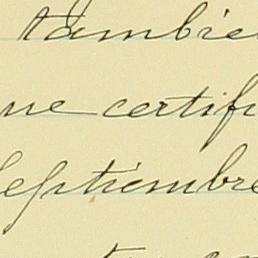 tambie
ue certifi
Septiembre